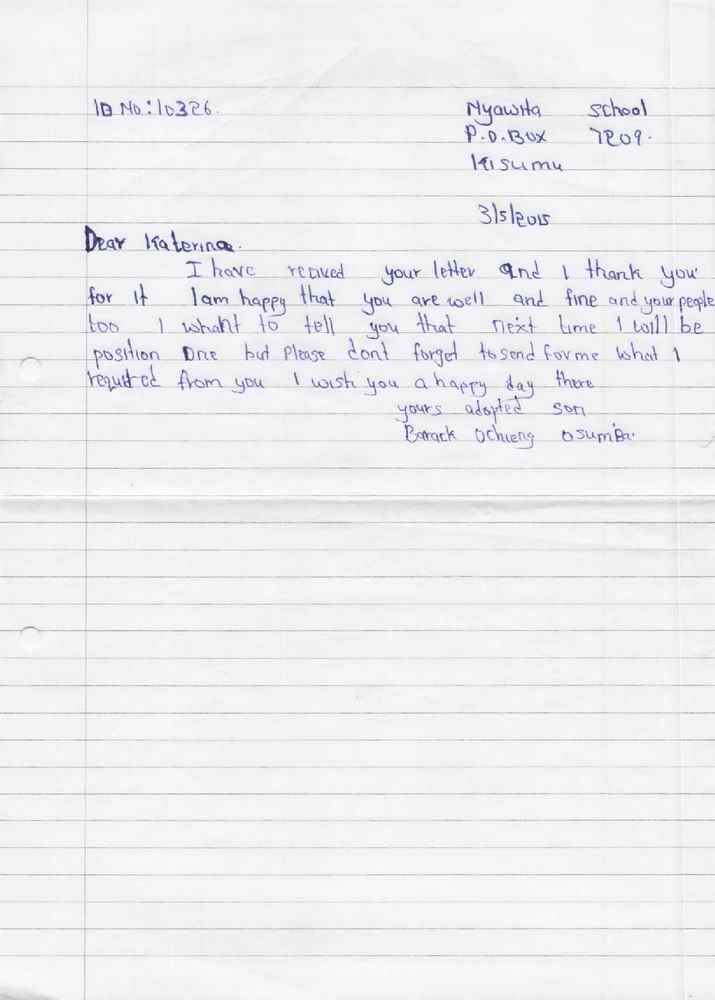 ID No: 10326.
Nyawita school
P.O.Box 7209.
Kisumu
3/5/2015
Dear Katerina.
I have recived your letter and I thank you
for it I am happy that you are well and fine and your people
too I whant to tell you that next time I will be
position One but Please dont forget to send for me what I
requited from you I wish you a happy day there
yours adopted son
Barack Ochieng Osumba.